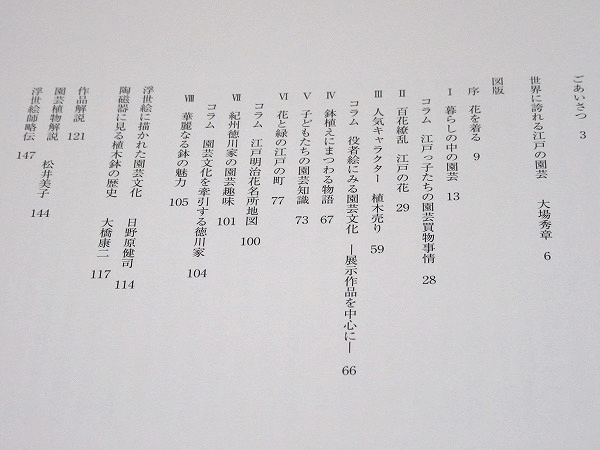 ごあいさつ 3
世界に誇れる江戸の園芸 大場秀章 6
図版
序 花を着る 9
Ⅰ 暮らしの中の園芸 13
コラム 江戸っ子たちの園芸買物事情 28
Ⅱ 百花繚乱 江戸の花 29
Ⅲ 人気キャラクター 植木売り 59
コラム 役者絵にみる園芸文化 ―展示作品を中心に― 66
Ⅳ 鉢植えにまつわる物語 67
Ⅴ 子どもたちの園芸知識 73
Ⅵ 花と緑の江戸の町 77
コラム 江戸明治花名所地図 100
Ⅶ 紀州徳川家の園芸趣味 101
コラム 園芸文化を牽引する徳川家 104
Ⅷ 華麗なる鉢の魅力 105
浮世絵に描かれた園芸文化 日野原健司 114
陶磁器に見る植木鉢の歴史 大橋康二 117
作品解説 121
園芸植物解説 松井美子 144
浮世絵師略伝 147